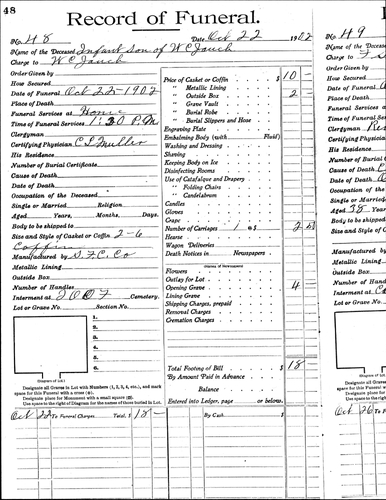 48
Record of Funeral.
No. 48 Date, Oct 22 1902
Name of the Deceased Infant son of W C Jauch
Charge to W C Jauch
Order Given by
How Secured
Date of Funeral Oct 22-1902
Place of Death
Funeral Services at Home
Time of Funeral Services 1:30 P.M.
Clergyman
Certifying Physician C L Muller
His Residence
Number of Burial Certificate
Cause of Death
Date of Death
Occupation of the Deceased
Single or Married Religion
Aged Years, Months, Days.
Body to be shipped to
Size and Style of Casket or Coffin 2-6
Coffin
Manufactured by S.F.C. Co
Metallic Lining
Outside Box
Number of Handles
Interment at I O O F Cemetery.
Lot or Grave No. Section No.
1.
2.
3.
4.
5.
6.
(Diagram of Lot)
Designate all Graves in Lot with Numbers (1, 2, 3, 4, etc.), and mark
space for this Funeral with a cross (x).
Designate place for Monument with a small square (□).
Use space to the right of Diagram for the names of those buried in Lot.
Price of Casket or Coffin $ 10 -
" Metallic Lining
" Outside Box 2 -
" Grave Vault
" Burial Robe
" Burial Slippers and Hose
Engraving Plate
Embalming Body (with Fluid)
Washing and Dressing
Shaving
Keeping Body on Ice
Disinfecting Rooms
Use of Catafalque and Drapery
" Folding Chairs
" Candelabrum
Candles
Gloves
Crape
Number of Carriages 1 @ $
Hearse
Wagon Deliveries
Death Notices in Newspapers
Flowers
Outlay for Lot
Opening Grave 4 -
Lining Grave
Shipping Charges, prepaid
Removal Charges
Cremation Charges
Total Footing of Bill $ 18 -
By Amount Paid in Advance
Balance
Entered into Ledger, page or below.
Oct 22 To Funeral Charges Total, $ 18 - By Cash $
No. 49
Name of the
Charge to
Order Given
How Secured
Date of Funeral
Place of Death
Funeral Services
Time of Funeral
Clergyman Rev
Certifying Physician
His Residence
Number of Burial
Cause of Death
Date of Death
Occupation of the
Single or Married
Aged 38 Years
Body to be shipped
Size and Style of
Manufactured by
Metallic Lining
Outside Box
Number of Handles
Interment at
Lot or Grave No.
(Diagram of
Designate all
space for this Fu
Designate place
Use space to the
Oct 26 To